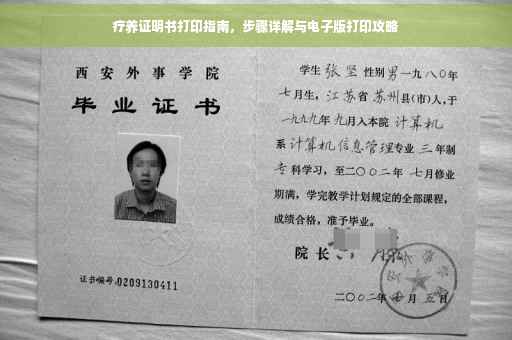 疗养证明书打印指南，步骤详解与电子版打印攻略
西安外事学院
毕业证书
证书编号:0209130411
学生 张坚 性别 男 一九八〇年
七月生，江苏省 苏州县(市)人,于
一九九九年 九月入本院 计算机
系 计算机信息管理专业 三年制
专科学习，至二〇〇二年 七月修业
期满，学完教学计划规定的全部课程，
成绩合格，准予毕业。
院长
二〇〇二年 月 五日